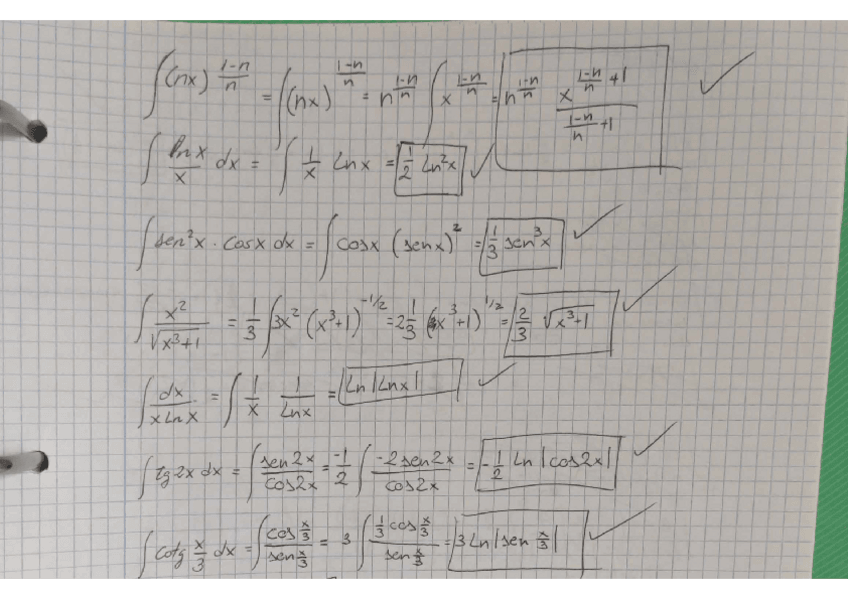 ∫(nx)^((1-n)/n) = ∫(nx)^((1-n)/n) = n^((1-n)/n) ∫x^((1-n)/n) = n^((1-n)/n) x^((1-n)/n +1) / ((1-n)/n +1) ✓
∫ ln x / x dx = ∫ 1/x Ln x = 1/2 Ln²x ✓
∫ sen²x · cosx dx = ∫ cosx (senx)² = 1/3 sen³x ✓
∫ x²/√(x³+1) = 1/3 ∫ 3x² (x³+1)^(-1/2) = 2 1/3 (x³+1)^(1/2) = 2/3 √(x³+1) ✓
∫ dx/(x Ln x) = ∫ 1/x 1/Lnx = Ln |Lnx| ✓
∫ tg 2x dx = ∫ sen2x/cos2x = -1/2 ∫ -2 sen 2x/cos2x = -1/2 Ln |cos2x| ✓
∫ cotg x/3 dx = ∫ cos x/3 / sen x/3 = 3 ∫ 1/3 cos x/3 / sen x/3 = 3 Ln |sen x/3| ✓